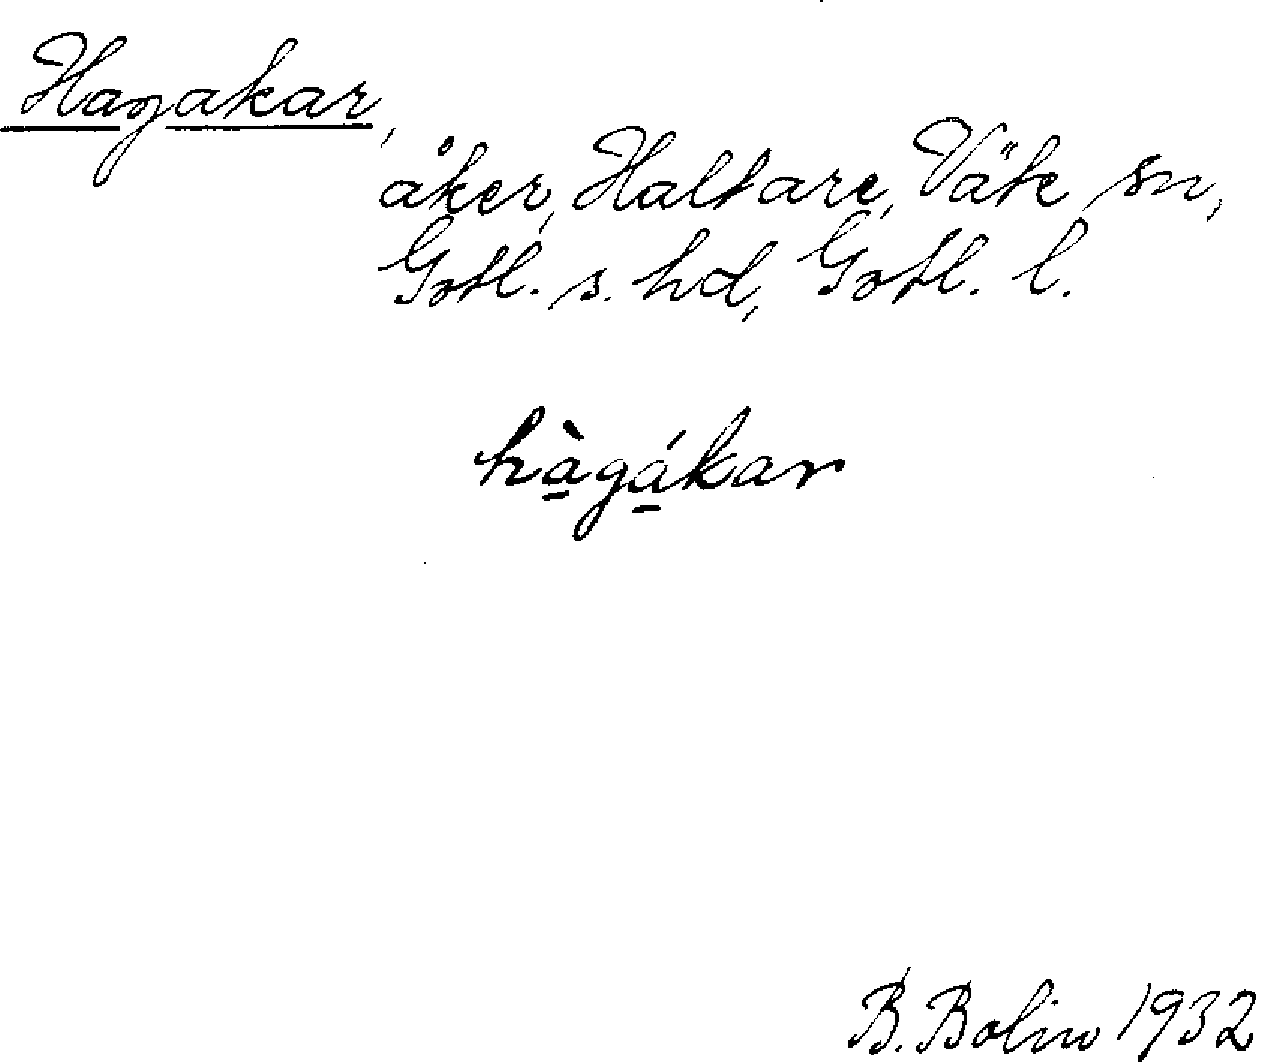 Hagakar,
åker, Haltare, Väte sn,
Gotl. s. hd, Gotl. l.
hàgákar
B. Bolin 1932